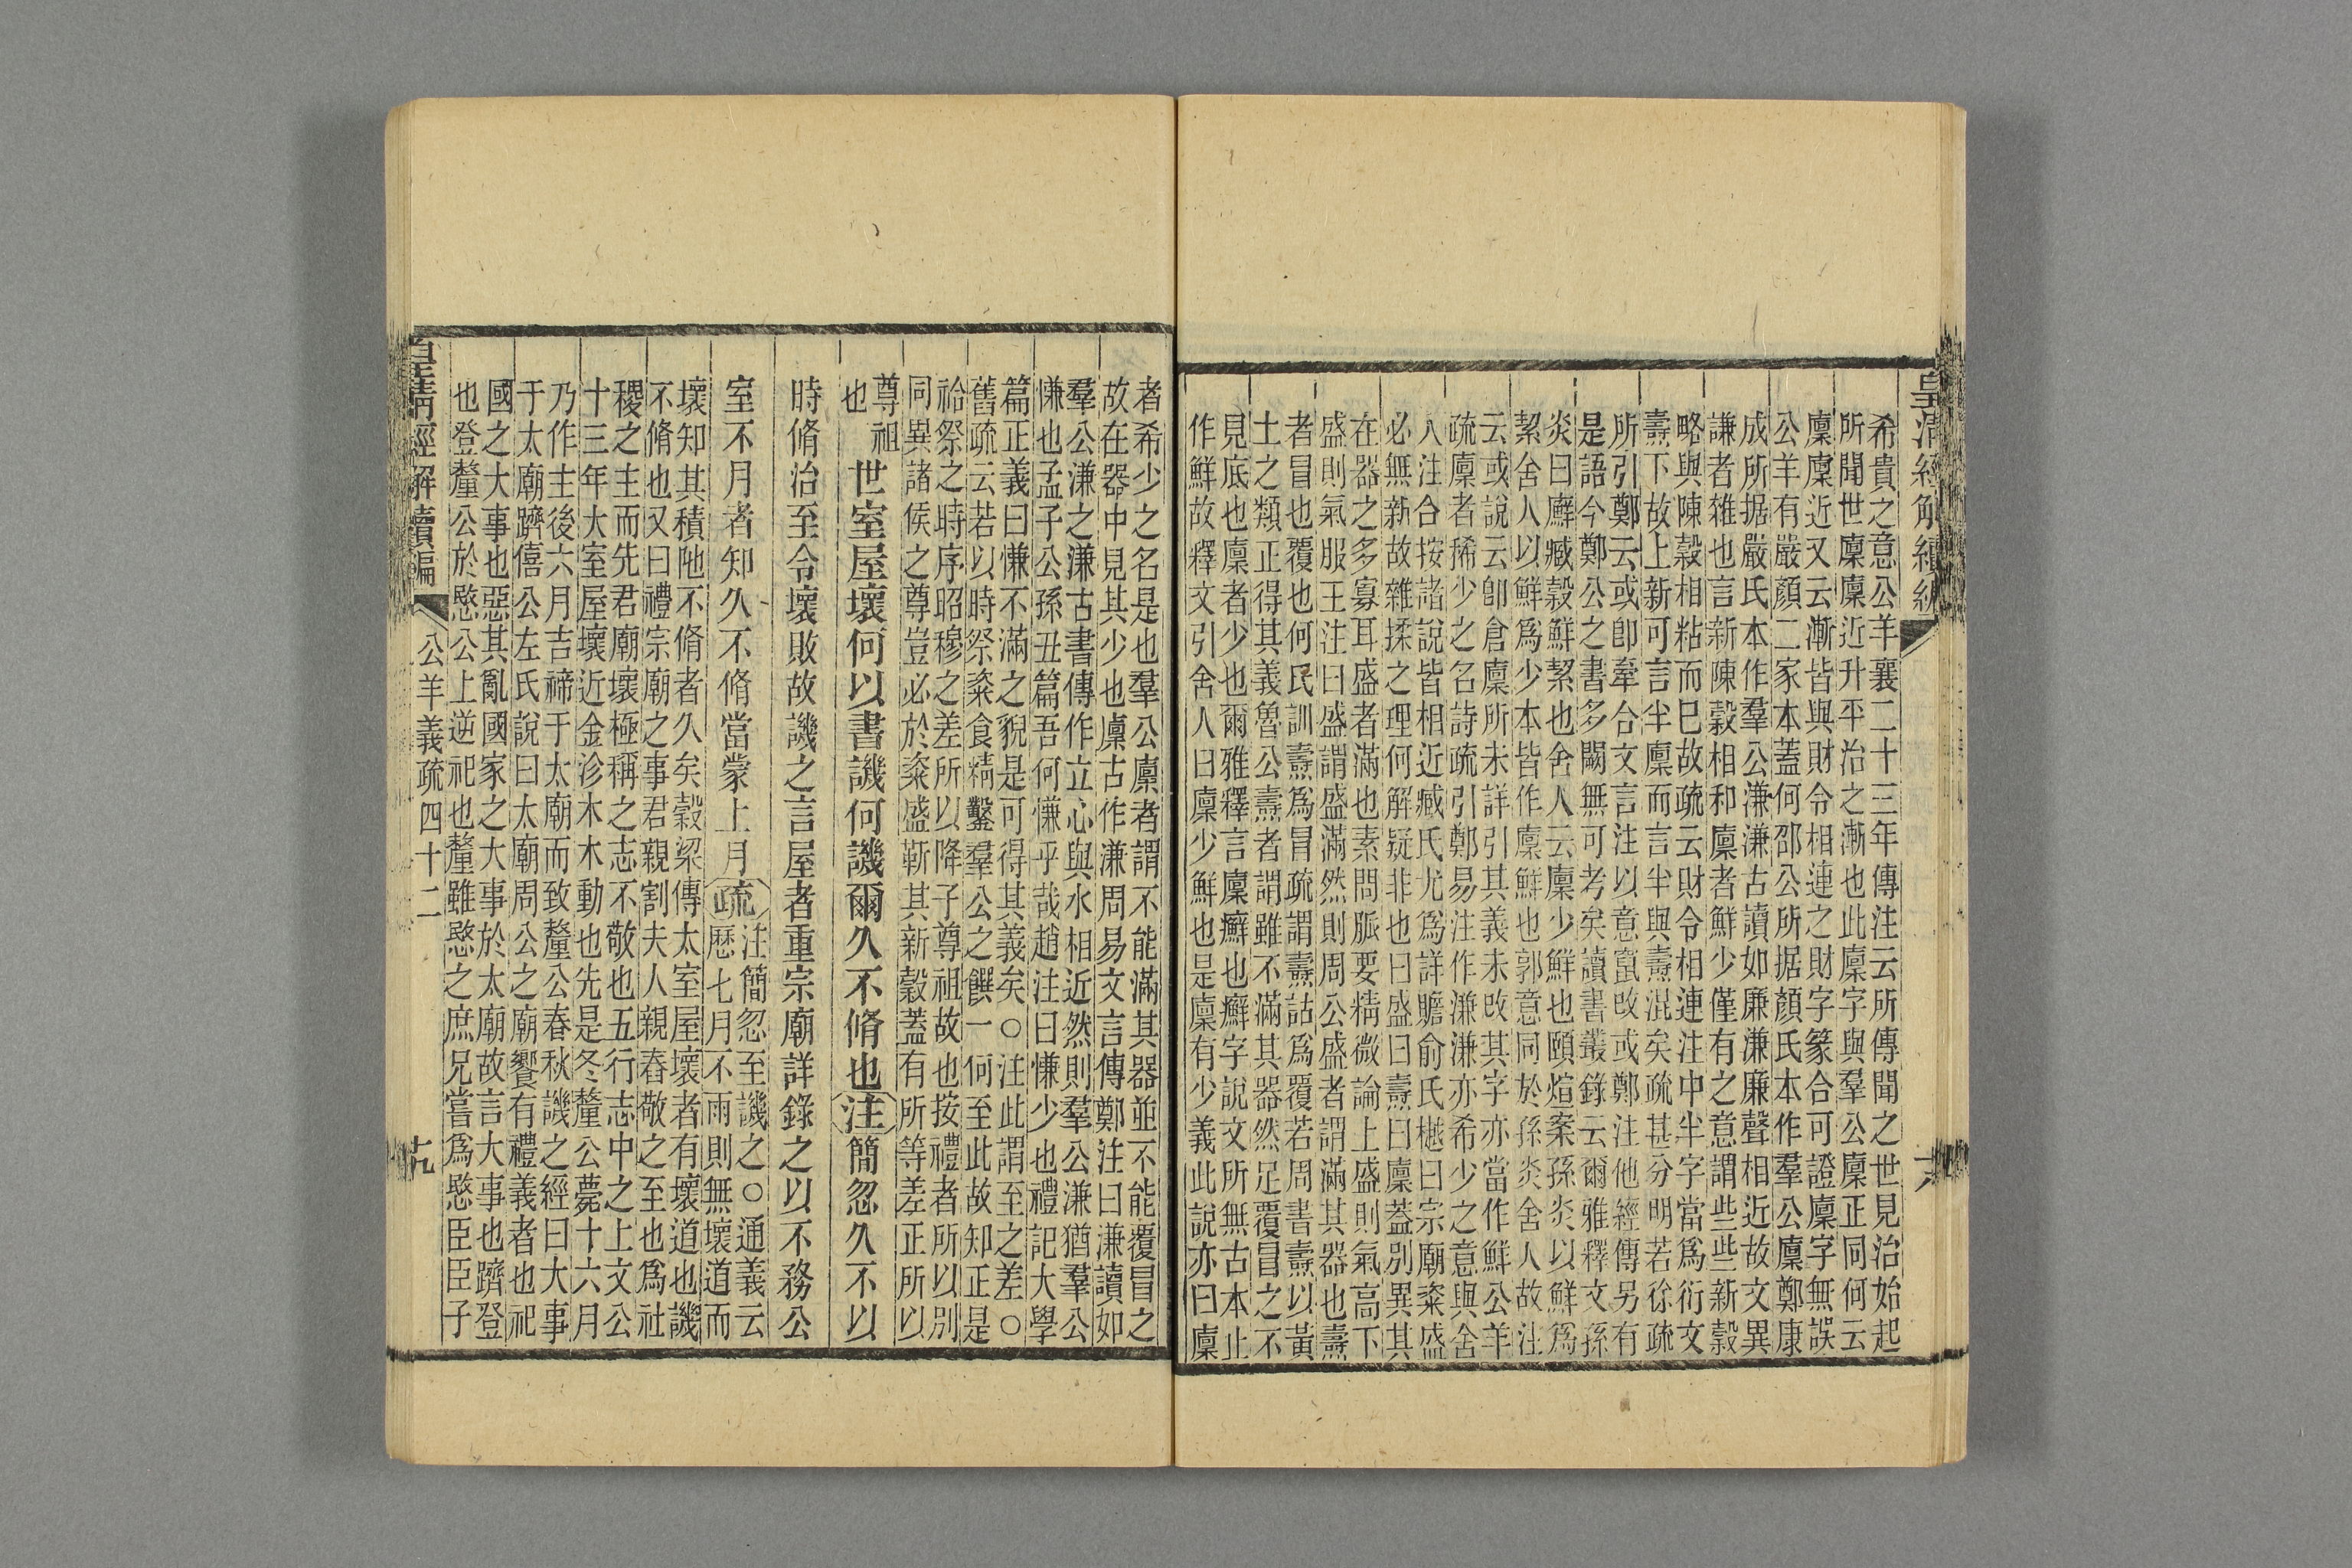 希貴之意公羊襄二十三年傳注云所傳聞之世見治始起
所聞世廩廩近升平治之漸也此廩字與羣公廩正同何云
廩廩近又云漸皆與財令相連之財字篆合可證廩字無誤
公羊有嚴顏二家本蓋何邵公所据顏氏本作羣公廩鄭康
成所据嚴氏本作羣公溓溓古讀如廉溓廉聲相近故文異
謙者雜也言新陳穀相和廩者鮮少僅有之意謂些些新穀
略與陳穀相粘而巳故疏云財令相連注中半字當爲衍文
燾下故上新可言半廩而言半與燾混矣疏甚分明若徐疏
所引鄭云或卽牽合文言注以意竄改或鄭注他經傳另有
是語今鄭公之書多闕無可考矣讀書叢錄云爾雅釋文孫
炎曰廯臧穀鮮絜也舍人云廩少鮮也頤煊案孫炎以鮮爲
絜舍人以鮮爲少本皆作廩鮮也郭意同於孫炎舍人故注
云或說云卽倉廩所未詳引其義未改其字亦當作鮮公羊
疏廩者稀少之名詩疏引鄭易注作溓溓亦希少之意與舍
人注合按諸說皆相近臧氏尤爲詳贍俞氏樾曰宗廟粢盛
必無新故雜揉之理何解疑非也曰盛曰燾曰廩蓋別異其
在器之多寡耳盛者滿也素問脈要精微論上盛則氣高下
盛則氣服王注曰盛謂盛滿然則周公盛者謂滿其器也燾
者冒也覆也何氏訓燾爲冒疏謂燾詁爲覆若周書燾以黃
土之類正得其義魯公燾者謂雖不滿其器然足覆冒之不
見底也廩者少也爾雅釋言廩廯也廯字說文所無古本止
作鮮故釋文引舍人曰廩少鮮也是廩有少義此說亦曰廩
者希少之名是也羣公廩者謂不能滿其器並不能覆冒之
故在器中見其少也廩古作溓周易文言傳鄭注曰溓讀如
羣公溓之溓古書傳作立心與水相近然則羣公溓猶羣公
慊也孟子公孫丑篇吾何慊乎哉趙注曰慊少也禮記大學
篇正義曰慊不滿之貌是可得其義矣○注此謂至之差○
舊疏云若以時祭粢食精鑿羣公之饌一何至此故知正是
祫祭之時序昭穆之差所以降子尊祖故也按禮者所以別
同異諸侯之尊豈必於粢盛靳其新穀蓋有所等差正所以
尊祖
也
世室屋壞何以書譏何譏爾久不脩也注簡忽久不以
時脩治至令壞敗故譏之言屋者重宗廟詳錄之以不務公
室不月者知久不脩當蒙上月疏注簡忽至譏之○通義云
歷七月不雨則無壞道而
壞知其積陁不脩者久矣穀梁傳太室屋壞者有壞道也譏
不脩也又曰禮宗廟之事君親割夫人親舂敬之至也爲社
稷之主而先君廟壞極稱之志不敬也五行志中之上文公
十三年大室屋壞近金沴木木動也先是冬釐公薨十六月
乃作主後六月吉禘于太廟而致釐公春秋譏之經曰大事
于太廟躋僖公左氏說曰太廟周公之廟饗有禮義者也祀
國之大事也惡其亂國家之大事於太廟故言大事也躋登
也登釐公於愍公上逆祀也釐雖愍之庶兄嘗爲愍臣臣子
皇清經解續編
公羊義疏四十二